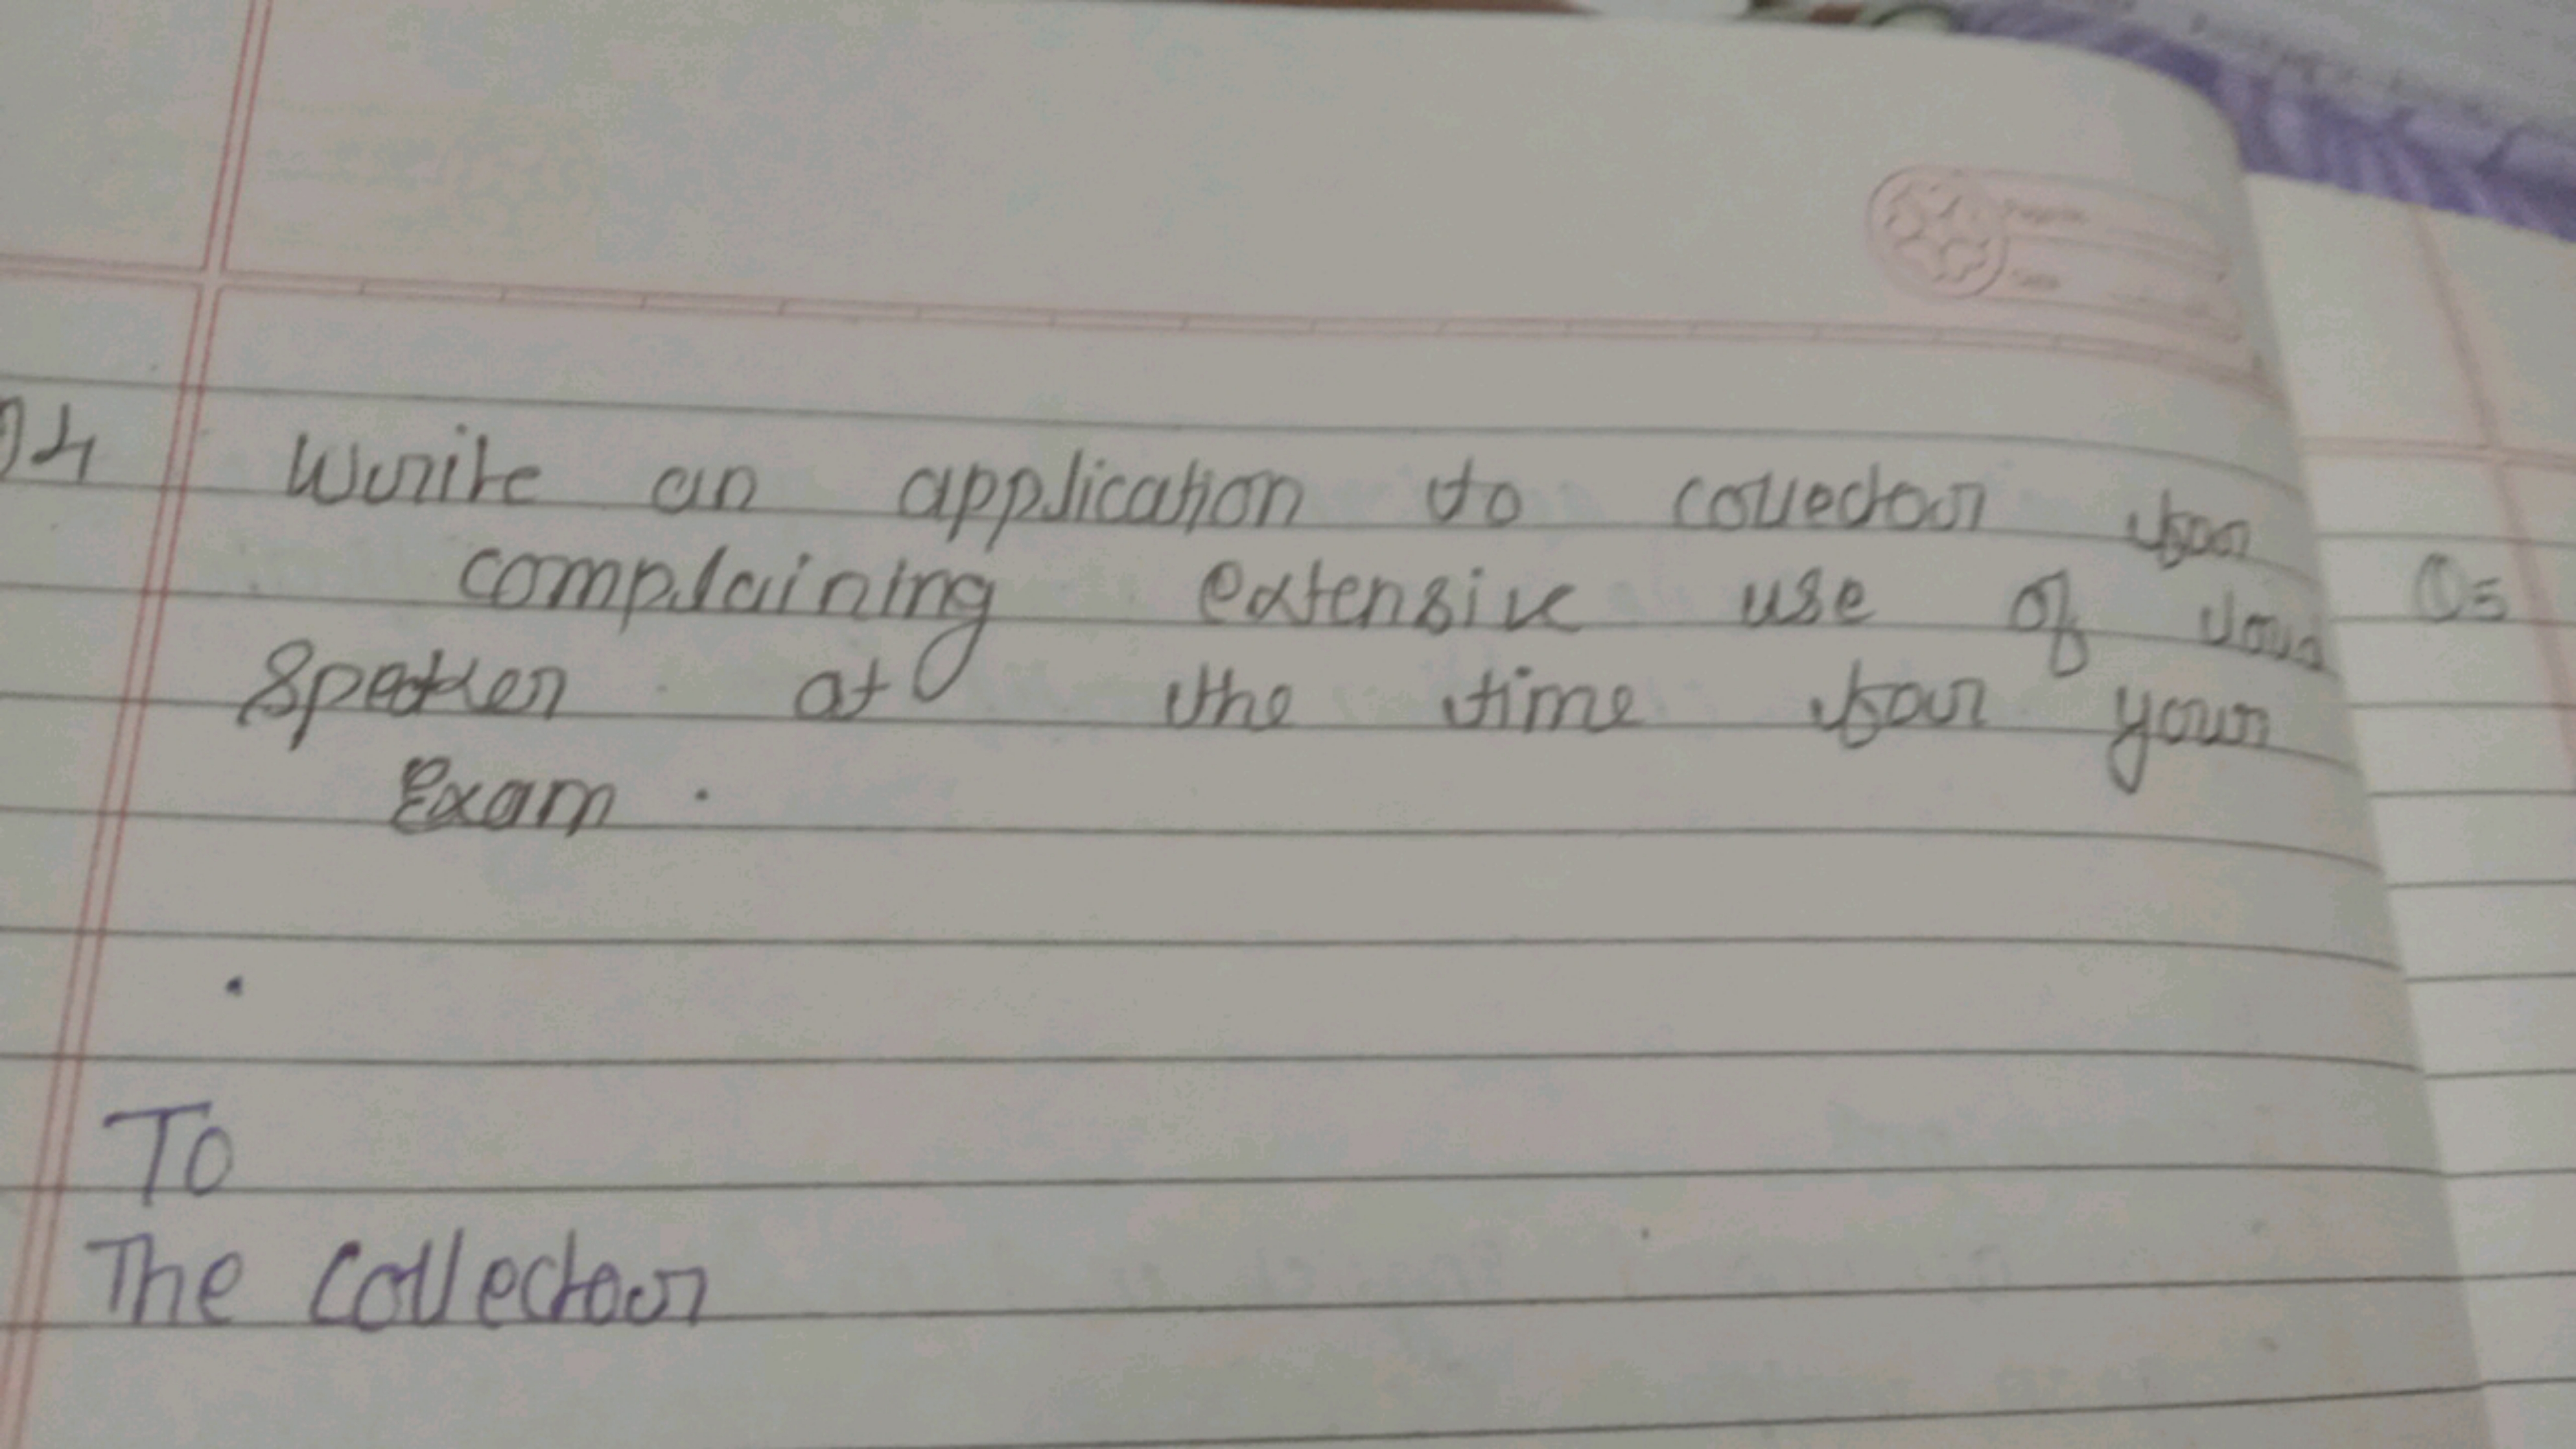 Q4 Write an application to collector for
complaining extensive use of loud
Speaker at the time for your
Exam .
To
The Collector
Q5